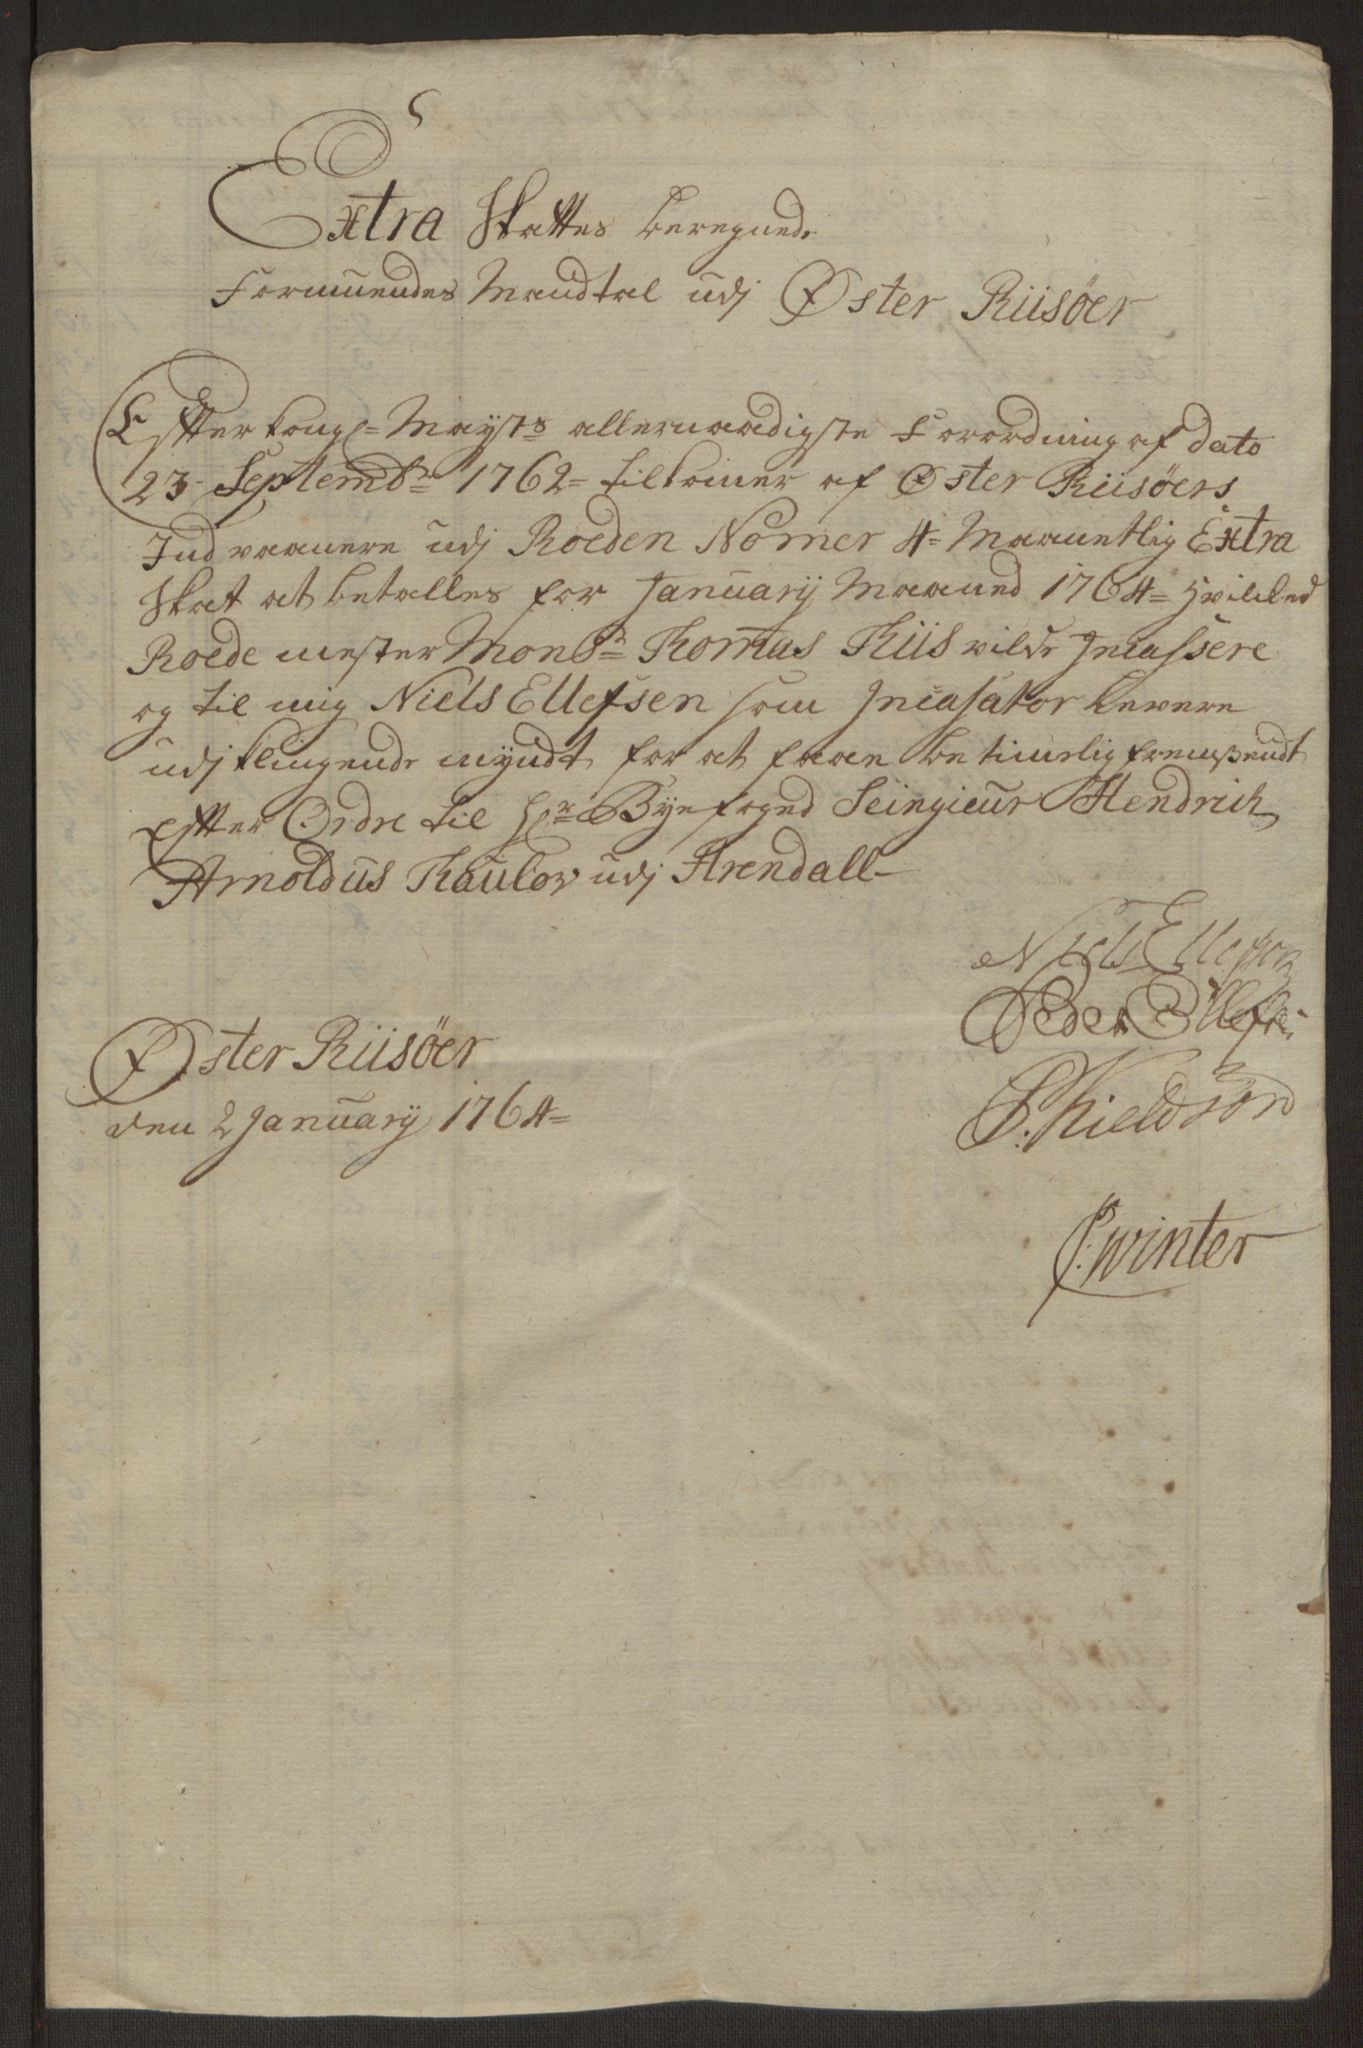 Extra Skattes beregnede
Formuendes Mandtal udj Øster Riisöer
Effter kongl= Maysts allernaadigste Forordning af dato
23 Septembr 1762= tilkomer af Øster Riisöers
Indvaanere udj Roeden Nomer 4= Maanetlig Extra
Skat at betalles for January Maaned 1764= hvilked
Roede mester Monsr Thomas Thiis vilde Incassere
og til mig Niels Ellefsen som Incasator levere
udj klingende myndt for at faae betimelig fremsendt
effter Ordre til Hr Byefoged Seingieur Hendrich
Arnoldus Thaulow udj Arendall
Niels Ellefsen
Peder Ellefsen
Øster Riisöer
den 2 January 1764=
P. Kieldson
P. Winter